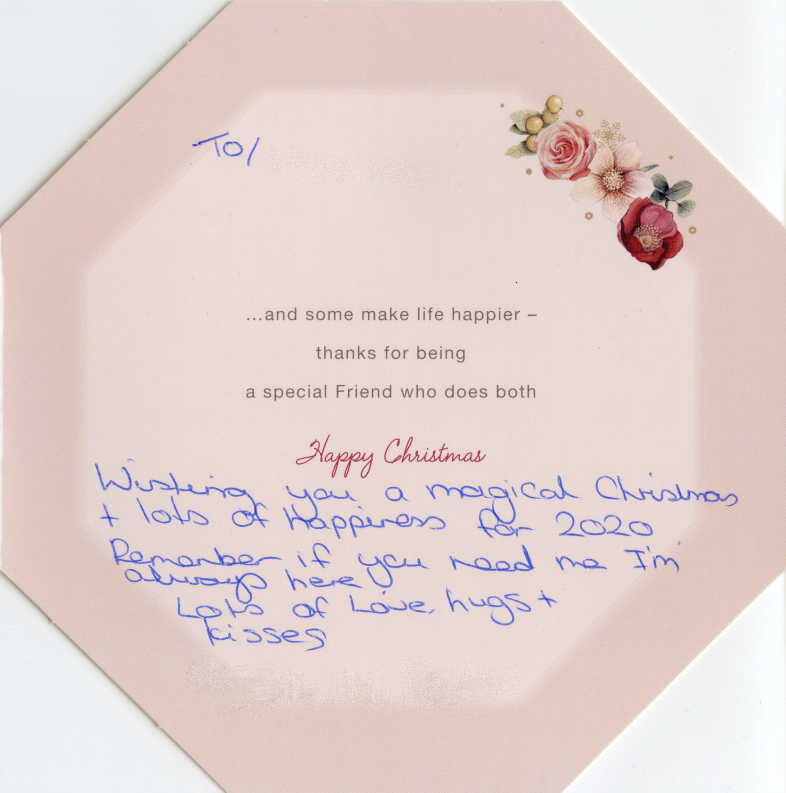 TO/
...and some make life happier –
thanks for being
a special Friend who does both
Happy Christmas
Wishing you a magical Christmas
+ lots of happiness for 2020
Remember if you need me I'm
always here
Lots of Love, hugs +
kisses